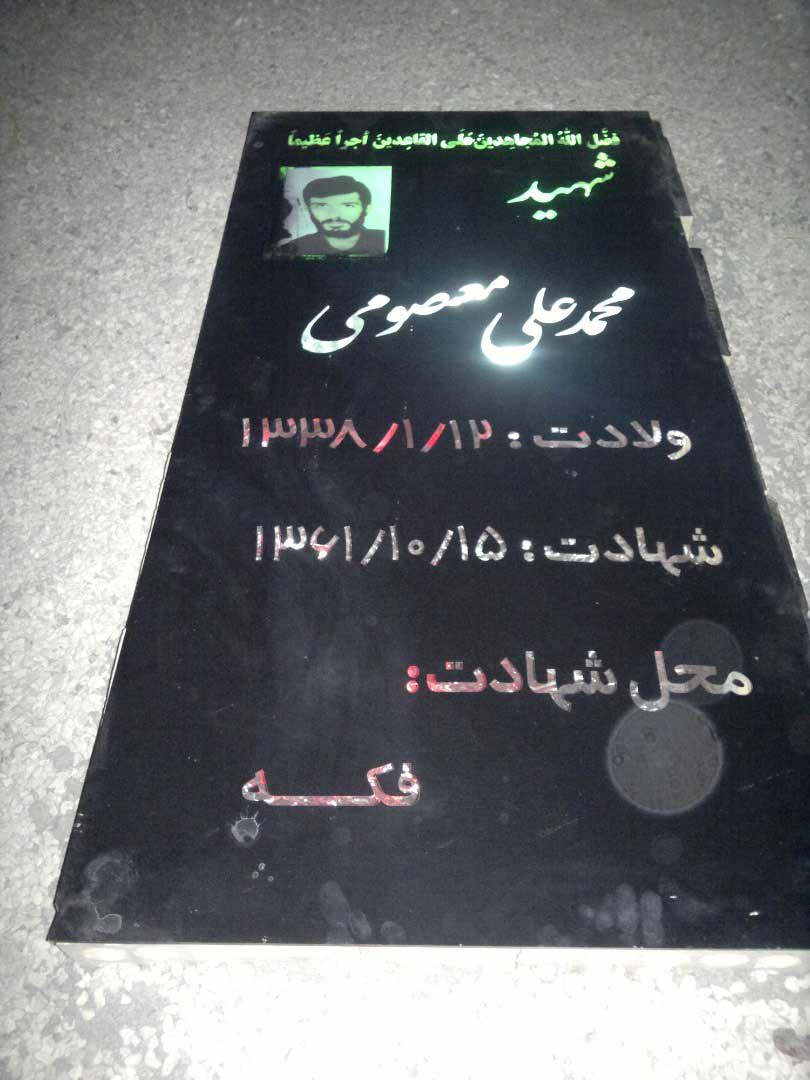 فضَّل اللهُ المُجاهِدینَ عَلَی القاعِدینَ أجراً عَظیماً
شهید
محمد علی معصومی
ولادت : ۱۳۳۸/۱/۱۲
شهادت : ۱۳۶۱/۱۰/۱۵
محل شهادت:
فکـــه